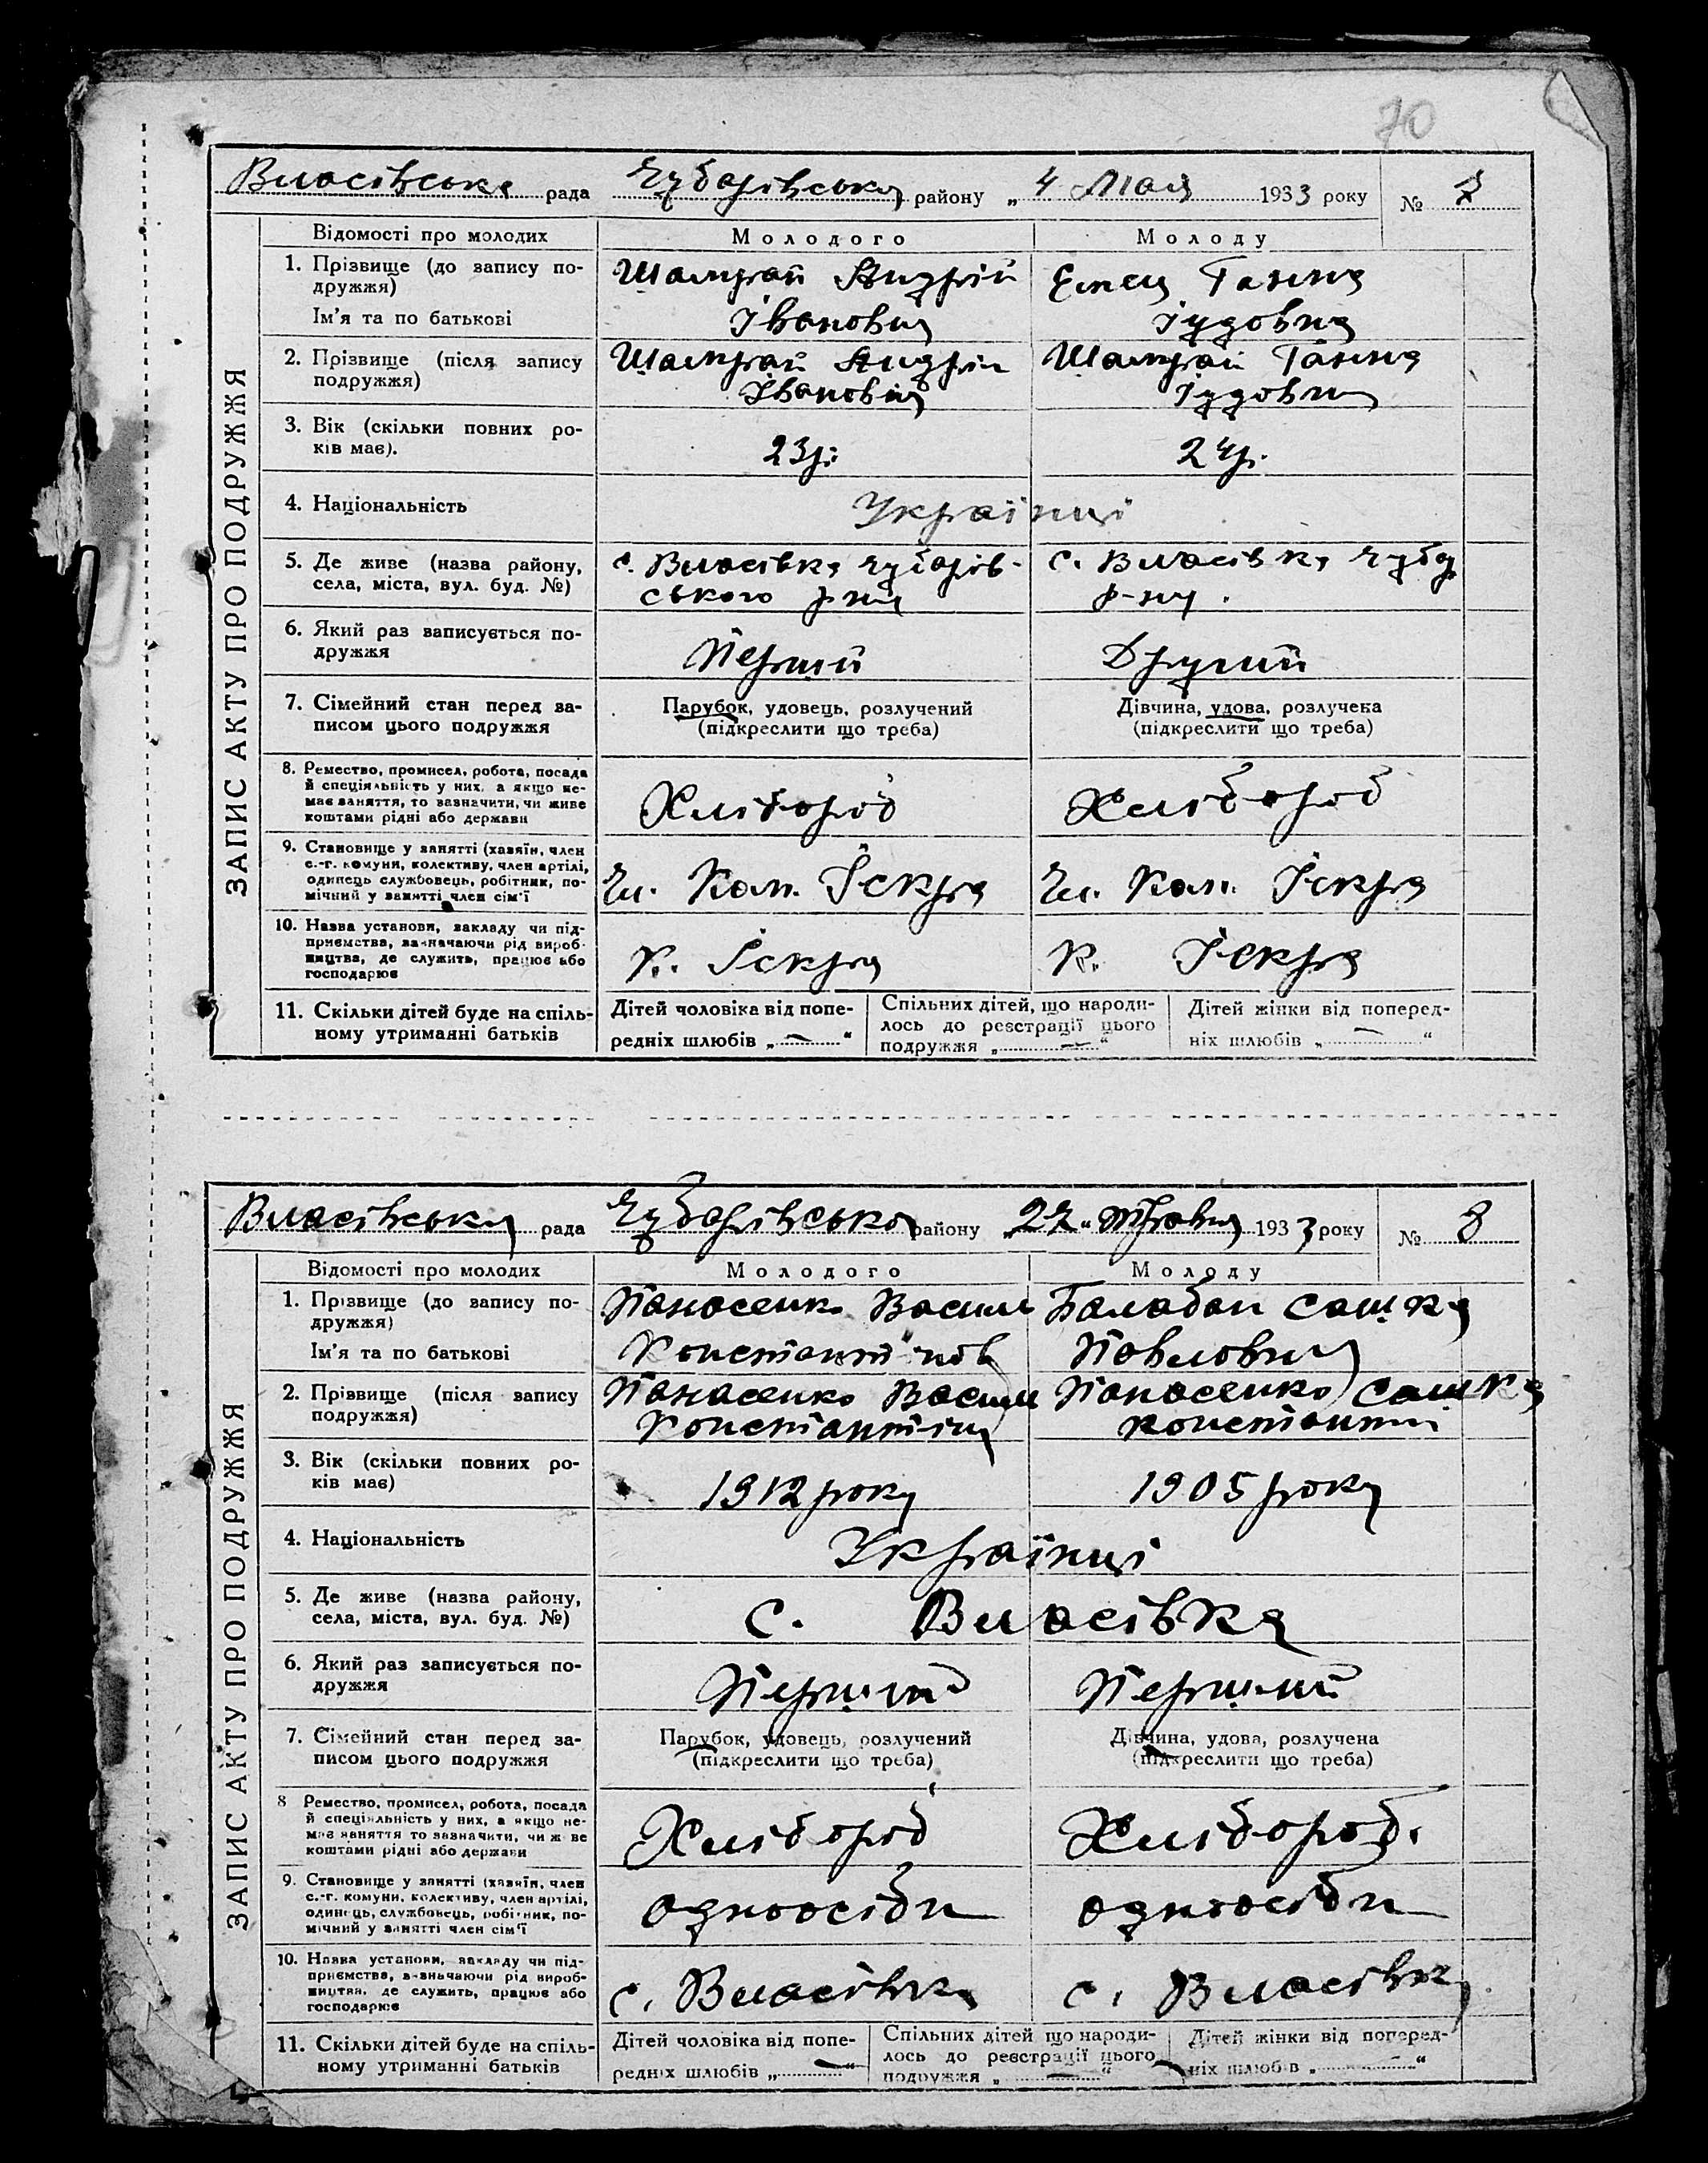 70
Власівська рада Чубарівська району „4 Мая 1933 року № 7
Відомості про молодих Молодого Молоду
ЗАПИС АКТУ ПРО ПОДРУЖЖЯ
1. Прізвище (до запису по- Шамрай Андрій Ганна
дружжя)
Ім'я та по батькові Івановия Іудовна
2. Прізвище (після запису Шамрай Андрій Шамрай Ганна
подружжя) Івановия Іудовн
3. Вік (скільки повних ро- 23р. 24р.
ків має).
4. Національність Українці
5. Де живе (назва району, с. Власівка Чубарів- с. Власівка Чубар
села, міста, вул. буд. №) ського р-ну р-ну.
6. Який раз записується по- Перший Другий
дружжя
7. Сімейний стан перед за- Парубок, удовець, розлучений Дівчина, удова, розлучена
писом цього подружжя (підкреслити що треба) (підкреслити що треба)
8. Ремество, промисел, робота, посада
й спеціяльність у них, а якщо не- Хлібороб Хлібороб
має заняття, то зазначити, чи живе
коштами рідні або держави
9. Становище у занятті (хазяїн, член
с.-г. комуни, колективу, член артілі, Чл. Ком. Іскра Чл. Ком. Іскра
одинець службовець, робітник, по-
мічний у занятті член сім'ї
10. Назва установи, закладу чи під-
приємства, зазначаючи рід вироб- К. Іскра К. Іскра
ництва, де служить, працює або
господарює
11. Скільки дітей буде на спіль- Дітей чоловіка від попе- Спільних дітей, що народи- Дітей жінки від поперед-
ному утриманні батьків редніх шлюбів „—“ лось до реєстрації цього ніх шлюбів „—“
подружжя „—“
Власівська рада Чубарівська району „27“ травня 1933 року № 8
Відомості про молодих Молодого Молоду
ЗАПИС АКТУ ПРО ПОДРУЖЖЯ
1. Прізвище (до запису по- Панасенко Васил Балабан Сашка
дружжя)
Ім'я та по батькові Константінов Павловна
2. Прізвище (після запису Панасенко Васил Панасенко Сашка
подружжя) Константін Константи
3. Вік (скільки повних ро- 1912 року 1905 року
ків має)
4. Національність Українці
5. Де живе (назва району, с. Власівка
села, міста, вул. буд. №)
6. Який раз записується по- Перший Перший
дружжя
7. Сімейний стан перед за- Парубок, удовець, розлучений Дівчина, удова, розлучена
писом цього подружжя (підкреслити що треба) (підкреслити що треба)
8 Ремество, промисел, робота, посада
й спеціяльність у них, а якщо не- Хлібороб Хлібороб.
має заняття то зазначити, чи живе
коштами рідні або держави
9. Становище у занятті (хазяїн, член
с.-г. комуни, колективу, член артілі, одноосібн одноосібн
одинець, службовець, робітник, по-
мічний у занятті член сім'ї
10. Назва установи, закладу чи під-
приємства, зазначаючи рід вироб- с. Власівка с. Власівка
ництва, де служить, працює або
господарює
11. Скільки дітей буде на спіль- Дітей чоловіка від попе- Спільних дітей що народи- Дітей жінки від поперед-
ному утриманні батьків редніх шлюбів „—“ лось до реєстрації цього ніх шлюбів „—“
подружжя „—“